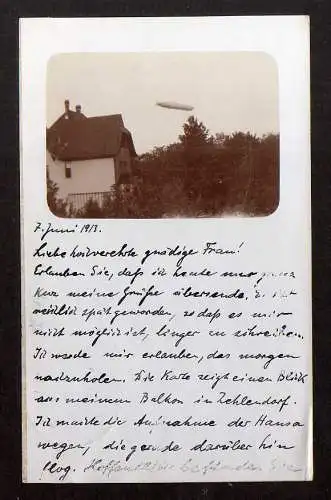 7. Juni 1913.
Liebe hochverehrte gnädige Frau!
Erlauben Sie, daß ich heute nur ganz
kurz meine Grüße übersende. Es ist
reichlich spät geworden, so daß es mir
nicht möglich ist, länger zu schreiben.
Ich werde mir erlauben, das morgen
nachzuholen. Die Karte zeigt einen Blick
aus meinem Balkon in Zehlendorf.
Ich machte die Aufnahme der Hansa
wegen, die gerade darüber hin
flog. Hoffentlich befinden Sie